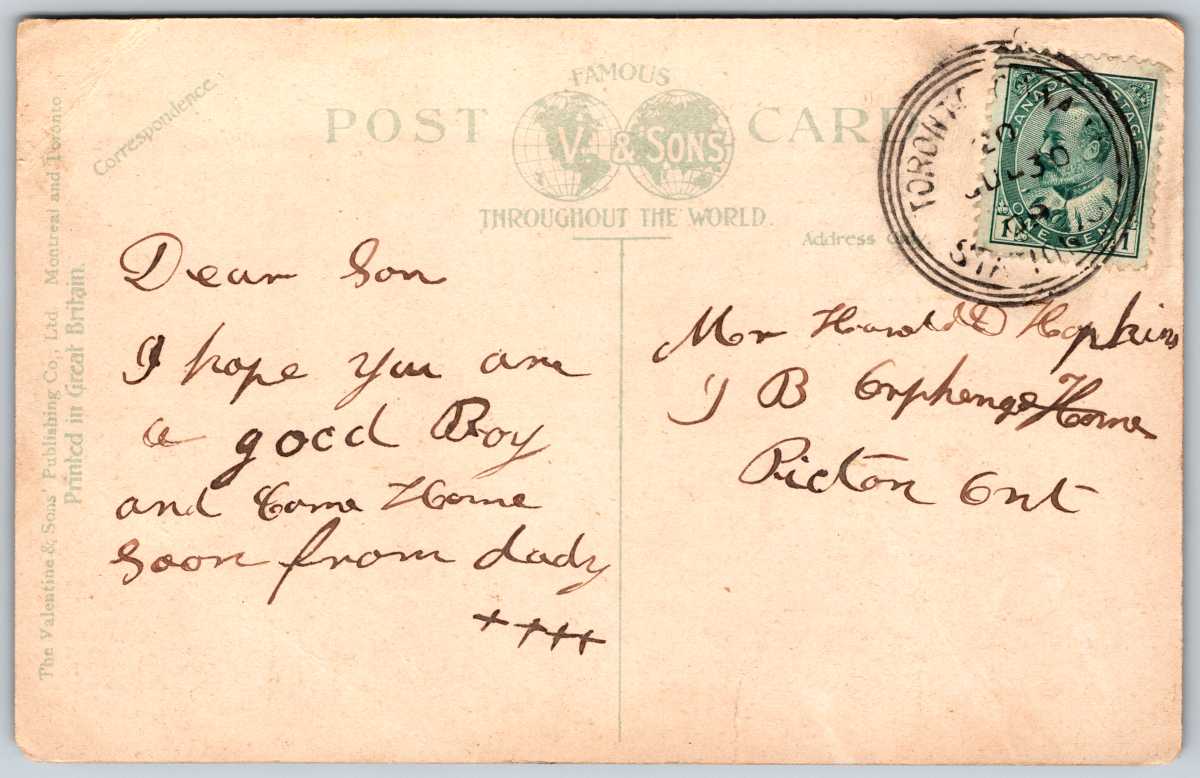 Correspondence.
FAMOUS
POST CARD
V. & SONS
THROUGHOUT THE WORLD.
Address
The Valentine & Sons' Publishing Co., Ltd. Montreal and Toronto
Printed in Great Britain.
TORONTO
20
JUL 30
POSTAGE
ONE CENT
1 1
Dear Son
I hope you are
a good Boy
and Come Home
Soon from dady
++++
Mr Harold D Hopkins
J B Orphenge Home
Picton Ont